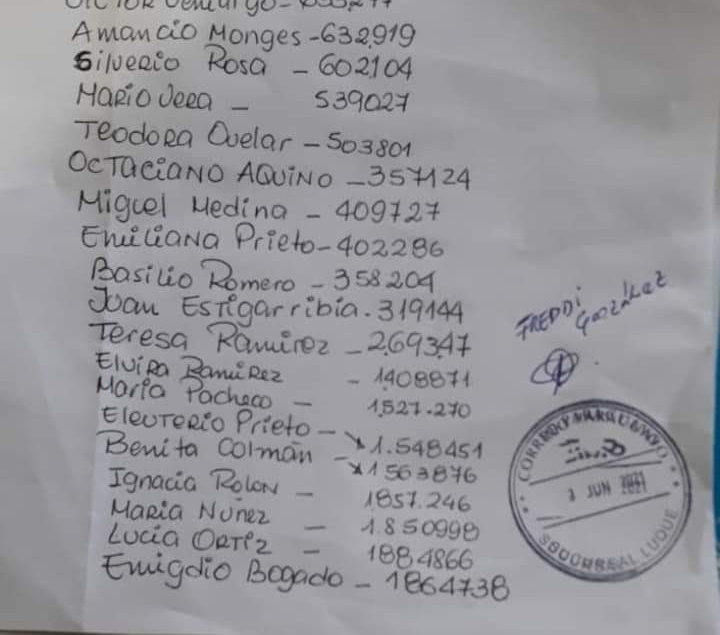 Amancio Monges - 632919
Silverio Rosa - 602104
Mario Vera - 539027
Teodora Ovelar - 503801
Octaciano Aquino - 357124
Miguel Medina - 409727
Emiliana Prieto - 402286
Basilio Romero - 358204
Juan Estigarribia. 319144
Teresa Ramirez - 269347
Elvira Ramirez - 1408871
Maria Pacheco - 1,527.270
Eleuterio Prieto - 1.548451
Benita Colmán - 1563876
Ignacia Rolon - 1857.246
Maria Nuñez - 1.850998
Lucia Ortiz - 1884866
Emigdio Bogado - 1864738
FREDDI
González
CORREO PARAGUAYO
JUN 2021
SUCURSAL LUQUE